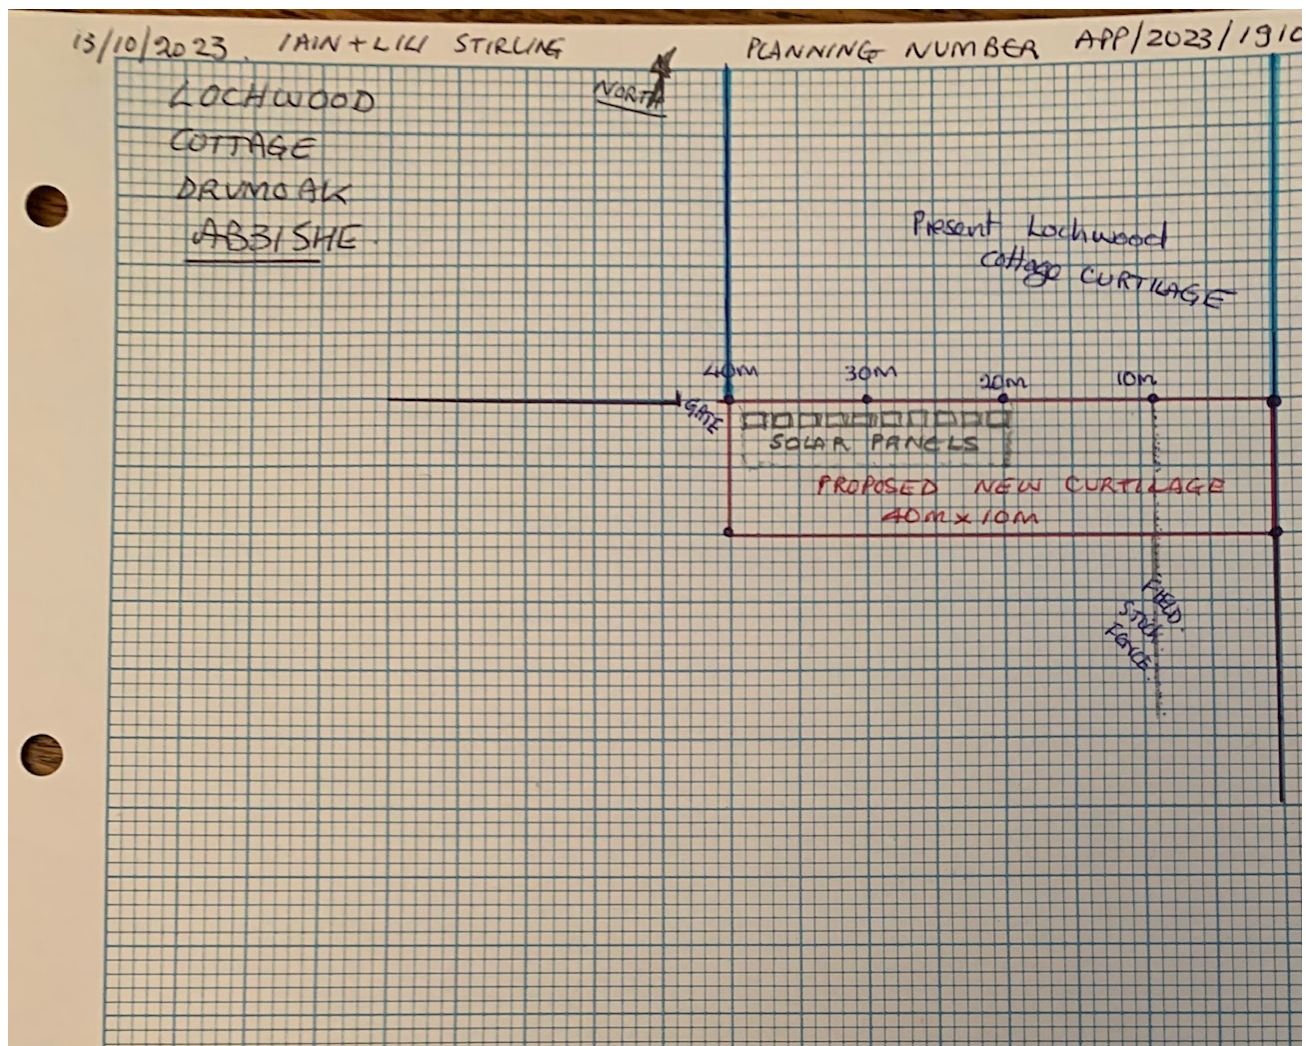 13/10/2023. IAIN + LILI STIRLING PLANNING NUMBER APP/2023/1910
NORTH
LOCHWOOD
COTTAGE
DRUMOAK
AB31 5HE.
Present Lochwood
Cottage CURTILAGE
40M 30M 20M 10M
GATE
SOLAR PANELS
PROPOSED NEW CURTILAGE
40M x 10M
FIELD.
STOCK.
FENCE.